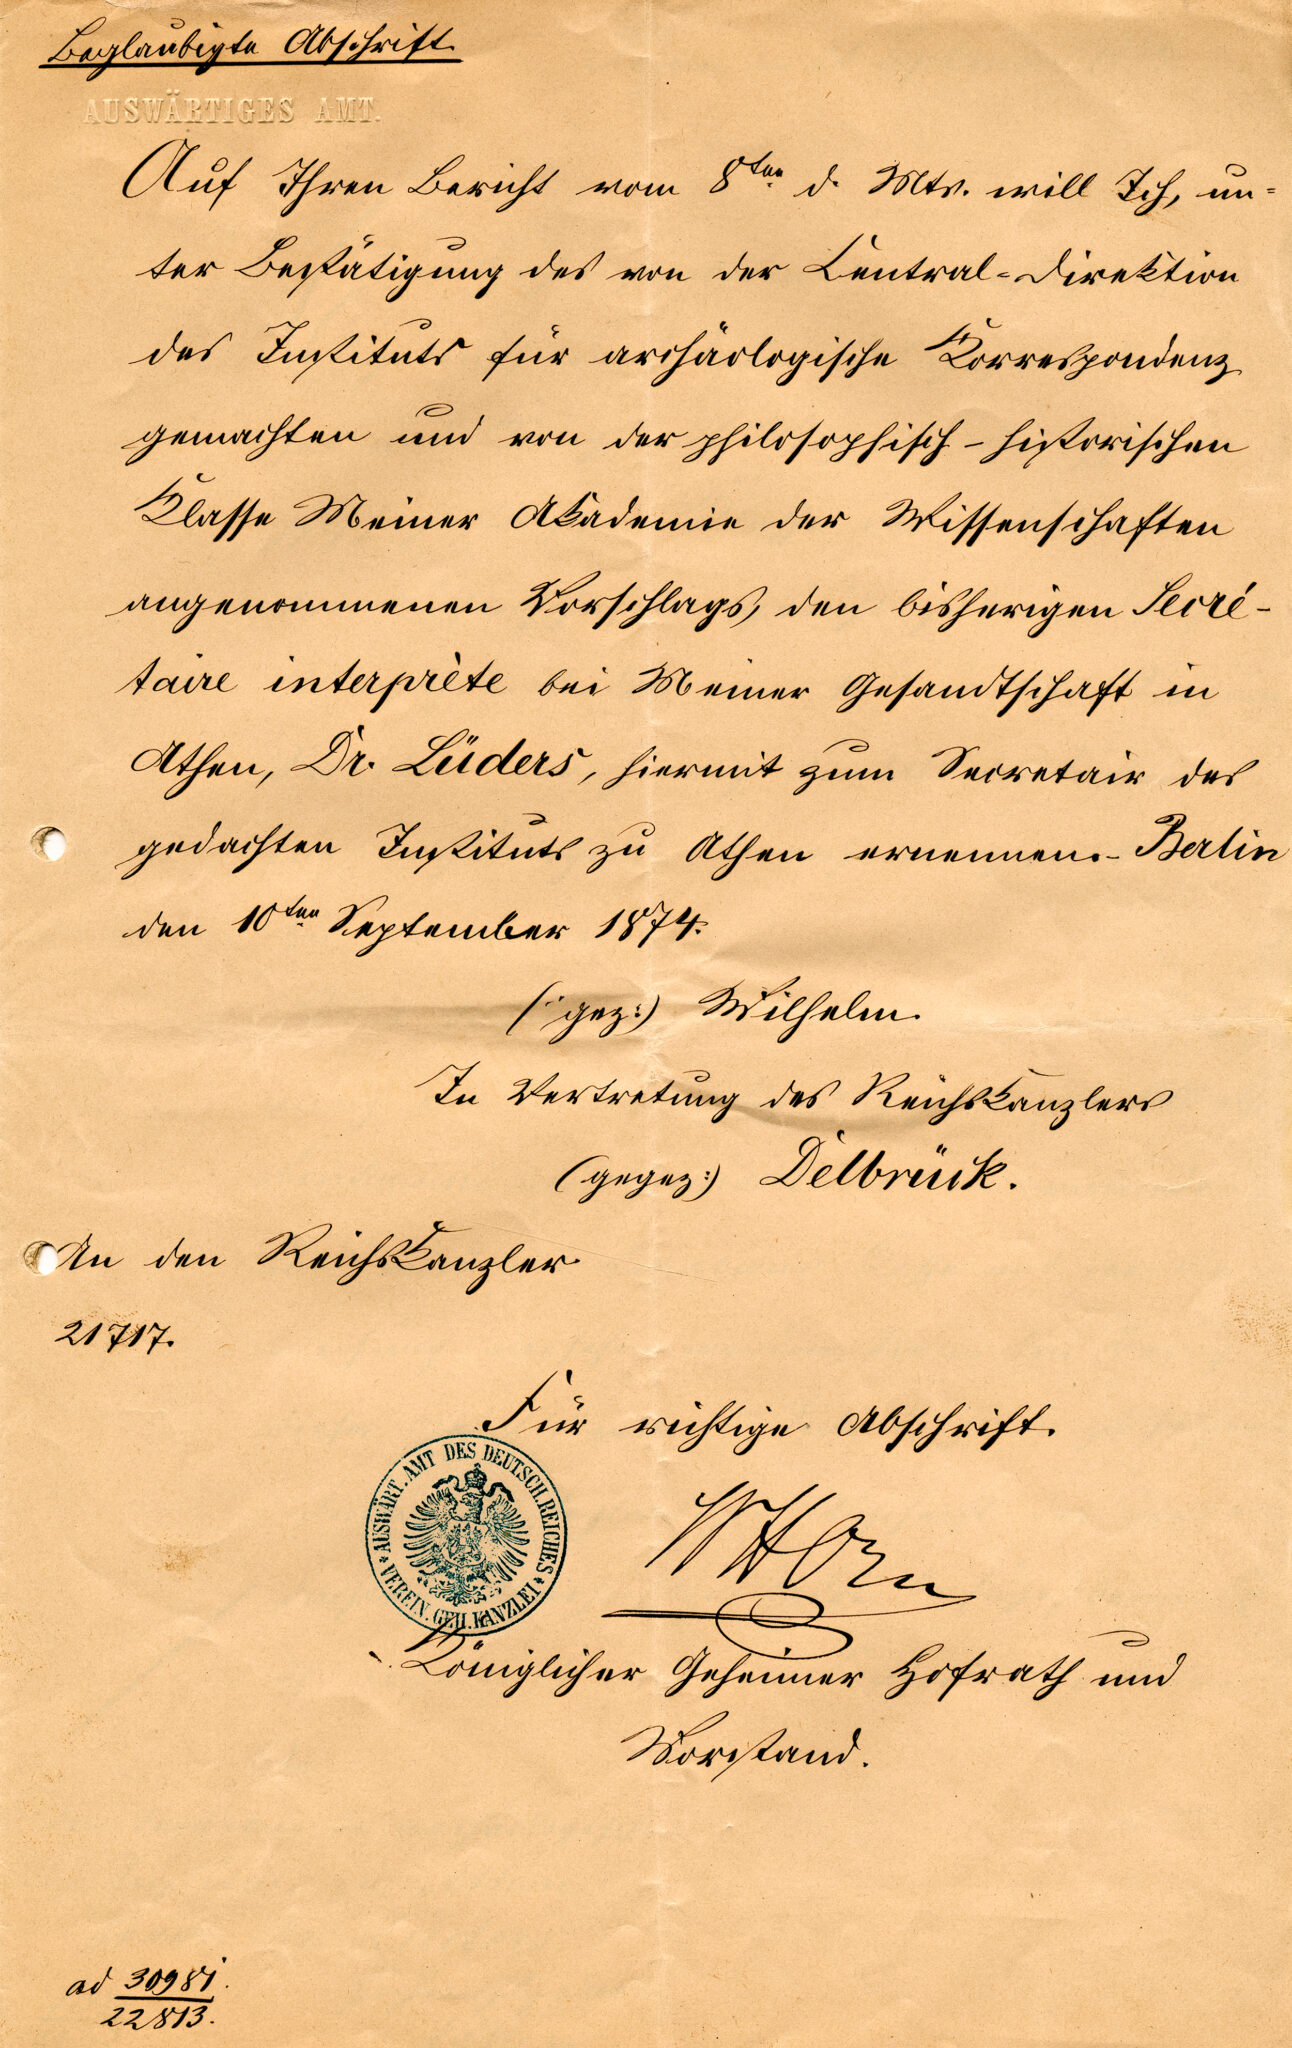 Beglaubigte Abschrift.
AUSWÄRTIGES AMT.
Auf Ihren Bericht vom 8ten d. Mts. will Ich, un=
ter Bestätigung des von der Central-Direktion
des Instituts für archäologische Korrespondenz
gemachten und von der philosophisch-historischen
Klasse Meiner Akademie der Wissenschaften
angenommenen Vorschlags, den bisherigen Secré-
taire interprète bei Meiner Gesandtschaft in
Athen, Dr. Lüders, hiermit zum Secretair des
gedachten Instituts zu Athen ernennen.- Berlin
den 10ten September 1874.
(gez:) Wilhelm.
In Vertretung des Reichskanzlers
(gegez:) Delbrück.
An den Reichskanzler
21717.
Für richtige Abschrift.
AUSWÄRT. AMT DES DEUTSCH. REICHES
VEREIN. GEH. KANZLEI
Königlicher Geheimer Hofrath und
Vorstand.
ad 30981.
22813.